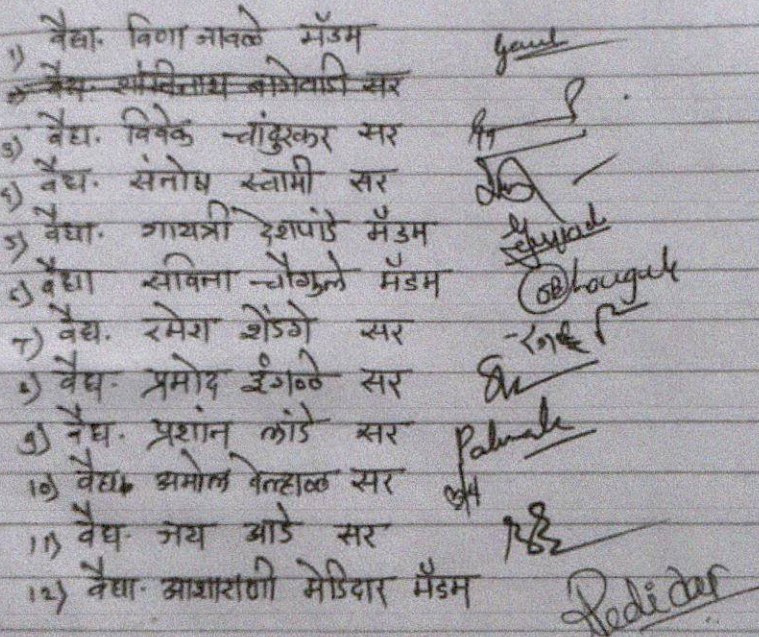 1) वैद्या. विणा नावळे मॅडम
3) वैद्य. विवेक चांदुरकर सर
4) वैद्य. संतोष स्वामी सर
5) वैद्या. गायत्री देशपांडे मॅडम
6) वैद्या सविता चौगुले मॅडम Chougule
7) वैद्य. रमेश शेंडगे सर
8) वैद्य. प्रमोद इंगळे सर
9) वैद्य. प्रशांत लांडे सर
10) वैद्य. अमोल वेल्हाळ सर
11) वैद्य. जय आडे सर
12) वैद्या. आशाराणी मेडिदार मॅडम